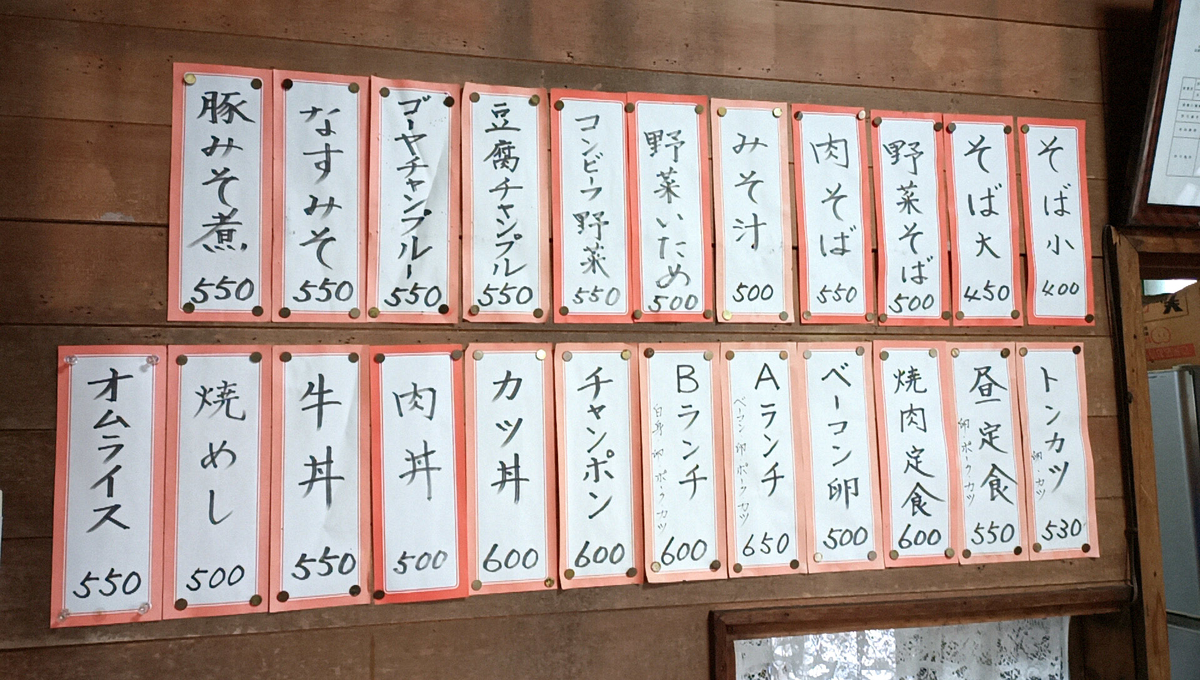 そば小 400
そば大 450
野菜そば 500
肉そば 550
みそ汁 500
野菜いため 500
コンビーフ野菜 550
豆腐チャンプル 550
ゴーヤチャンプルー 550
なすみそ 550
豚みそ煮 550
トンカツ 530
卵・カツ
昼定食 550
卵・ポークカツ
焼肉定食 600
ベーコン卵 500
Aランチ 650
ベーコン 卵 ポークカツ
Bランチ 600
白身 卵 ポーク カツ
チャンポン 600
カツ丼 600
肉丼 500
牛丼 550
焼めし 500
オムライス 550